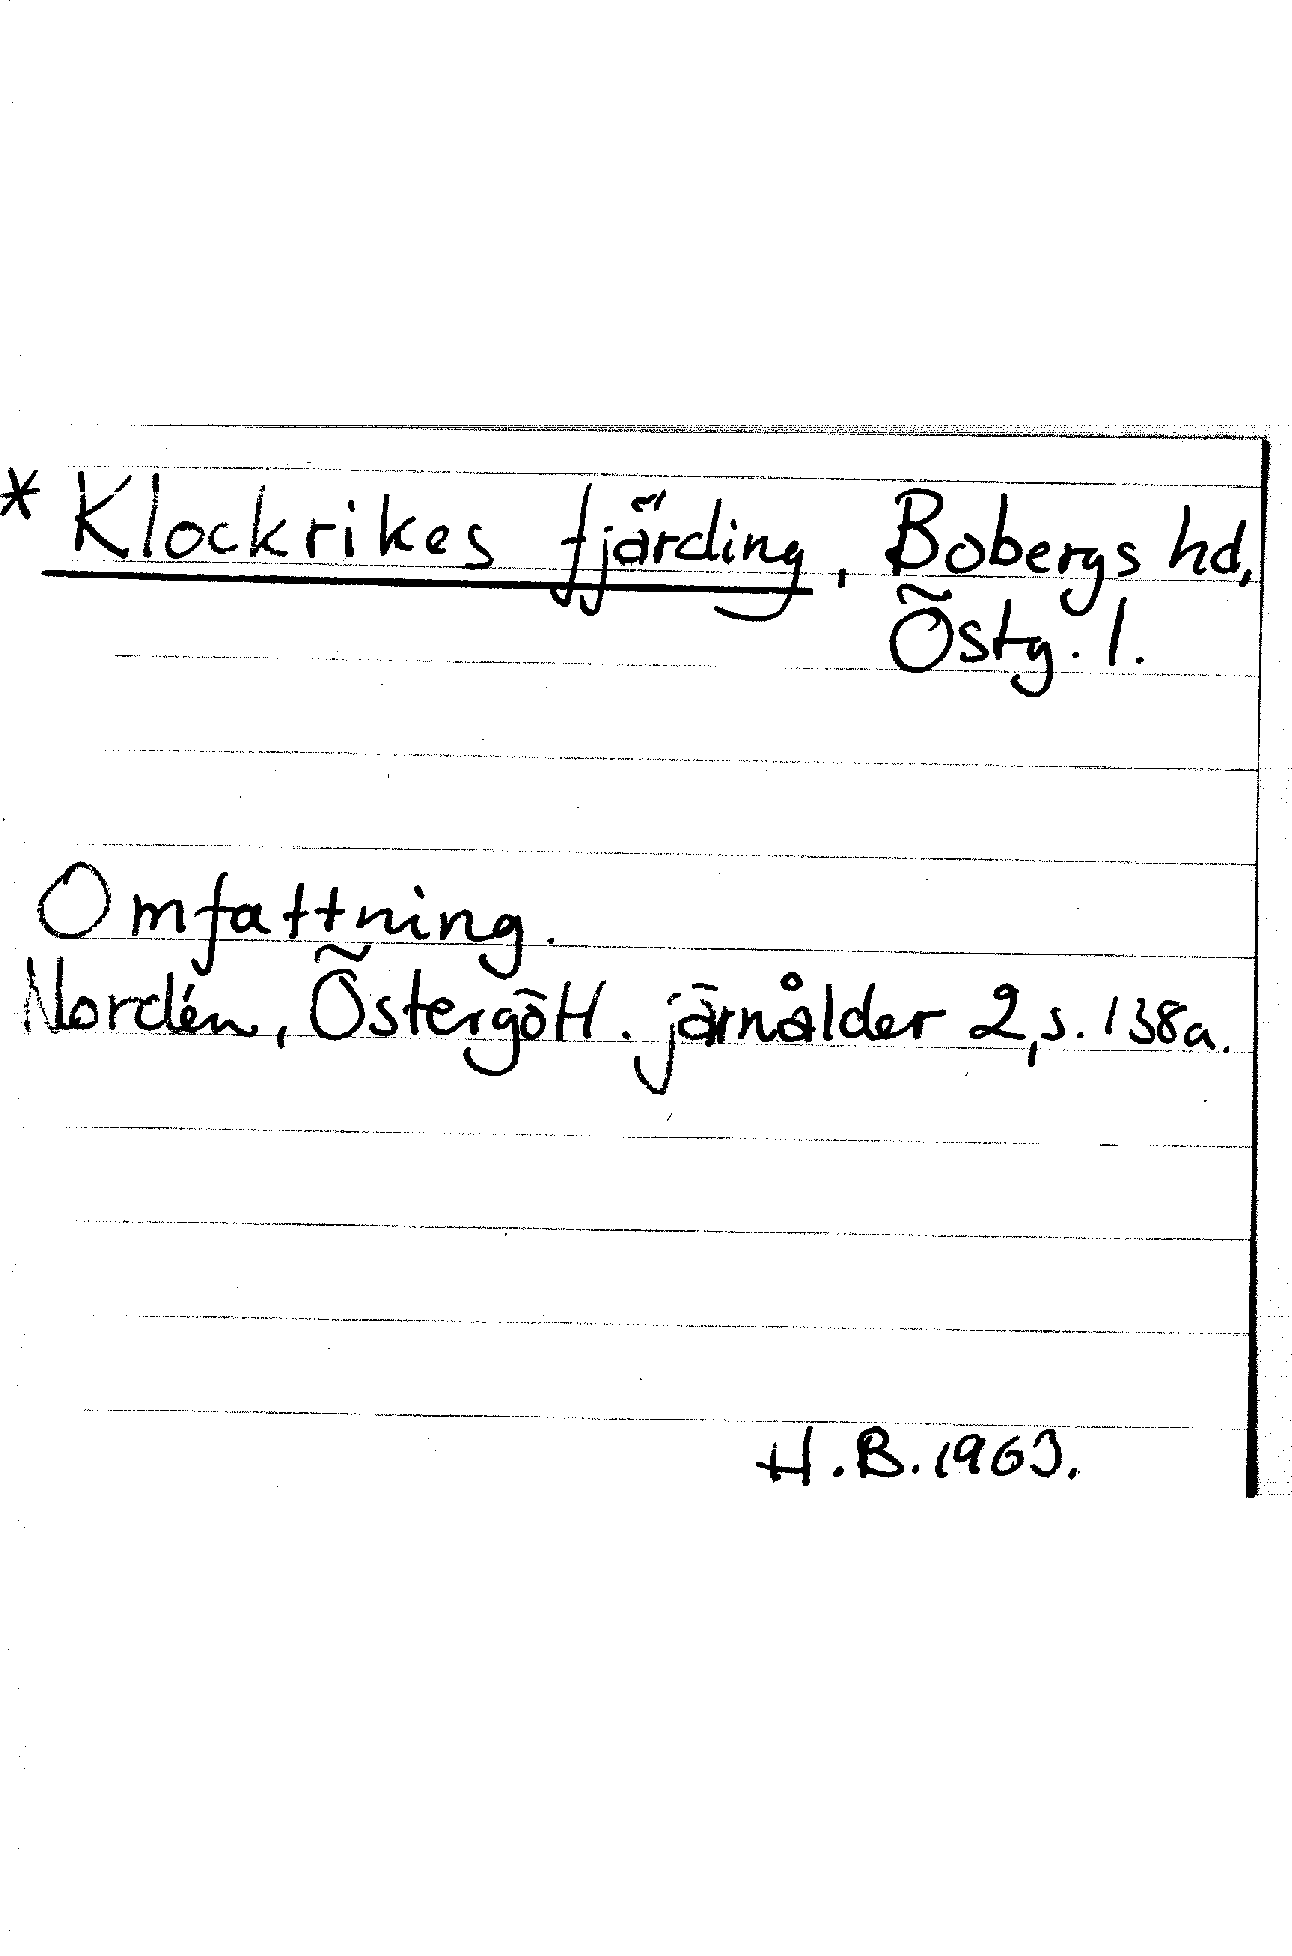 * Klockrikes fjärding, Bobergs hd,
Östg. l.
Omfattning.
Nordén, Östergött. järnålder 2, s. 138a.
H.B. 1963.